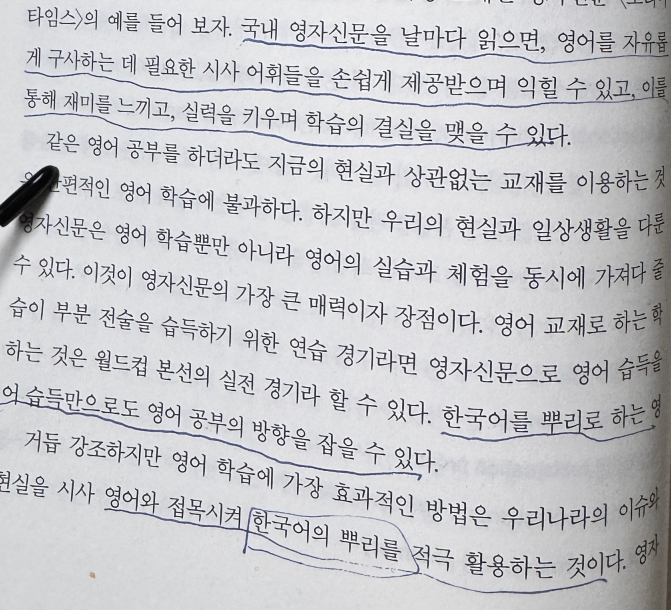 타임스>의 예를 들어 보자. 국내 영자신문을 날마다 읽으면, 영어를 자유롭
게 구사하는 데 필요한 시사 어휘들을 손쉽게 제공받으며 익힐 수 있고, 이를
통해 재미를 느끼고, 실력을 키우며 학습의 결실을 맺을 수 있다.
같은 영어 공부를 하더라도 지금의 현실과 상관없는 교재를 이용하는 것
단편적인 영어 학습에 불과하다. 하지만 우리의 현실과 일상생활을 다룬
영자신문은 영어 학습뿐만 아니라 영어의 실습과 체험을 동시에 가져다 줄
수 있다. 이것이 영자신문의 가장 큰 매력이자 장점이다. 영어 교재로 하는 학
습이 부분 전술을 습득하기 위한 연습 경기라면 영자신문으로 영어 습득을
하는 것은 월드컵 본선의 실전 경기라 할 수 있다. 한국어를 뿌리로 하는 영
어 습득만으로도 영어 공부의 방향을 잡을 수 있다.
거듭 강조하지만 영어 학습에 가장 효과적인 방법은 우리나라의 이슈와
현실을 시사 영어와 접목시켜 한국어의 뿌리를 적극 활용하는 것이다. 영자